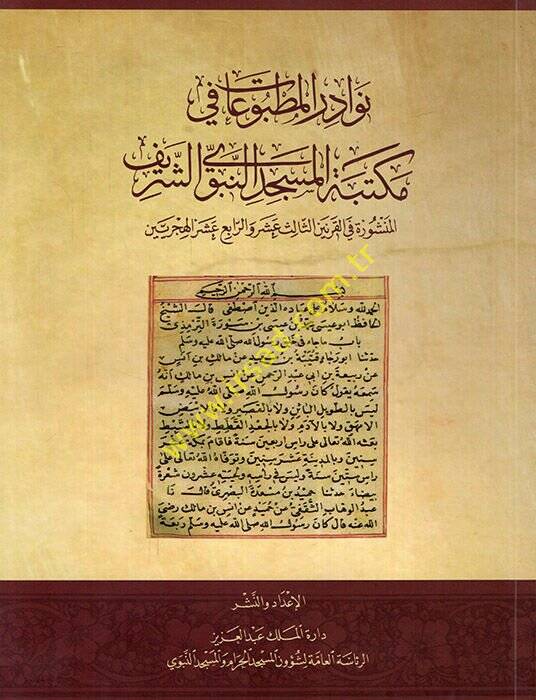 نوادر المطبوعات في
مكتبة المسجد النبوي الشريف
المنشورة في القرنين الثالث عشر والرابع عشر الهجريين
بسم الله الرحمن الرحيم
الحمد لله وسلام على عباده الذين اصطفى قال الشيخ
الحافظ ابو عيسى محمد بن عيسى بن سورة الترمذي
باب ما جاء في خلق رسول الله صلى الله عليه وسلم
حدثنا ابو رجاء قتيبة بن سعيد عن مالك بن انس
عن ربيعة بن ابي عبد الرحمن عن انس بن مالك انه
سمعه يقول كان رسول الله صلى الله عليه وسلم
ليس بالطويل البائن ولا بالقصير ولا بالابيض
الامهق ولا بالادم ولا بالجعد القطط ولا بالسبط
بعثه الله تعالى على راس اربعين سنة فاقام بمكة عشر
سنين وبالمدينة عشر سنين وتوفاه الله تعالى على
راس ستين سنة وليس في راسه ولحيته عشرون شعرة
بيضاء حدثنا حميد بن مسعدة البصري قال نا
عبد الوهاب الثقفي عن حميد عن انس بن مالك رضي
الله عنه قال كان رسول الله صلى الله عليه وسلم ربعة
www.ursad.com.tr
الإعداد والنشر
دارة الملك عبد العزيز
الرئاسة العامة لشؤون المسجد الحرام والمسجد النبوي